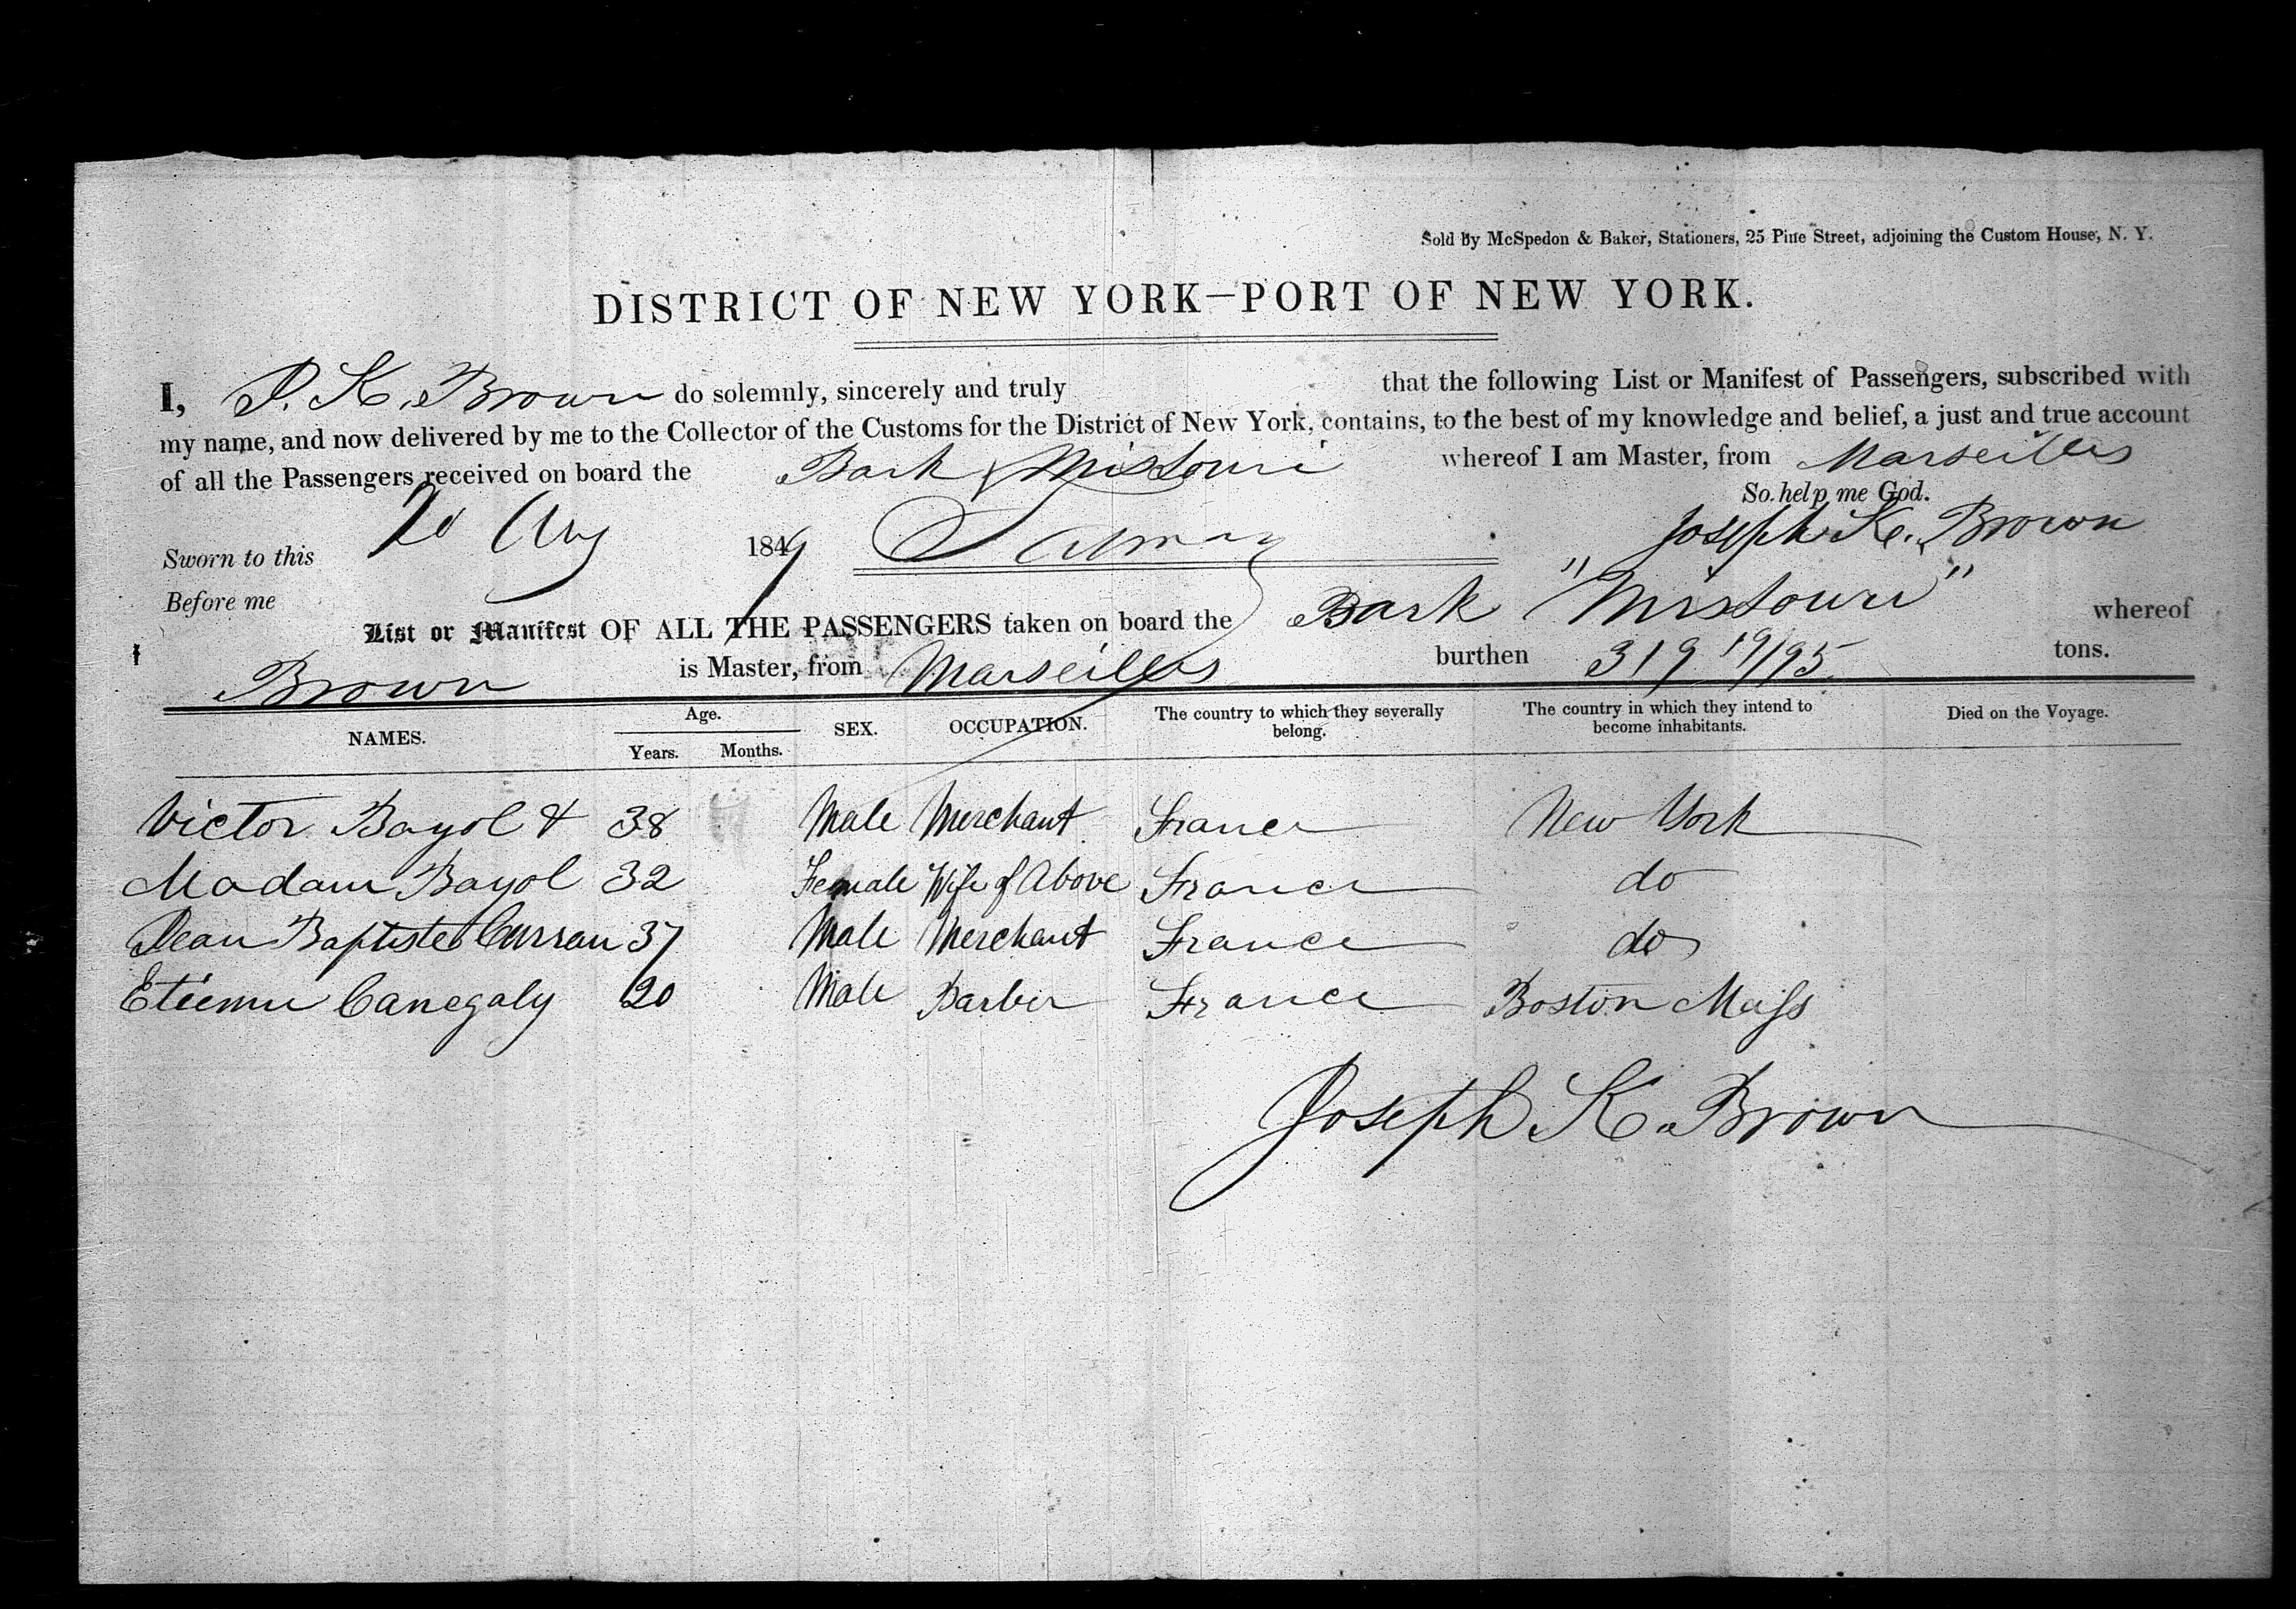 Sold by McSpedon & Baker, Stationers, 25 Pine Street, adjoining the Custom House, N. Y.
DISTRICT OF NEW YORK—PORT OF NEW YORK.
I, J. K. Brown do solemnly, sincerely and truly that the following List or Manifest of Passengers, subscribed with
my name, and now delivered by me to the Collector of the Customs for the District of New York, contains, to the best of my knowledge and belief, a just and true account
of all the Passengers received on board the Bark Missouri whereof I am Master, from Marseilles
So help me God.
Sworn to this 20 Aug 1849 Joseph K. Brown
Before me
List or Manifest OF ALL THE PASSENGERS taken on board the Bark "Missouri" whereof
Brown is Master, from Marseilles burthen 319 19/95 tons.
NAMES. Age. Years. Months. SEX. OCCUPATION. The country to which they severally belong. The country in which they intend to become inhabitants. Died on the Voyage.
Victor Bayol & 38 Male Merchant France New York
Madam Bayol 32 Female Wife of Above France do
Jean Baptiste Curran 37 Male Merchant France do
Etienne Canegaly 20 Male Barber France Boston Mass
Joseph K. Brown